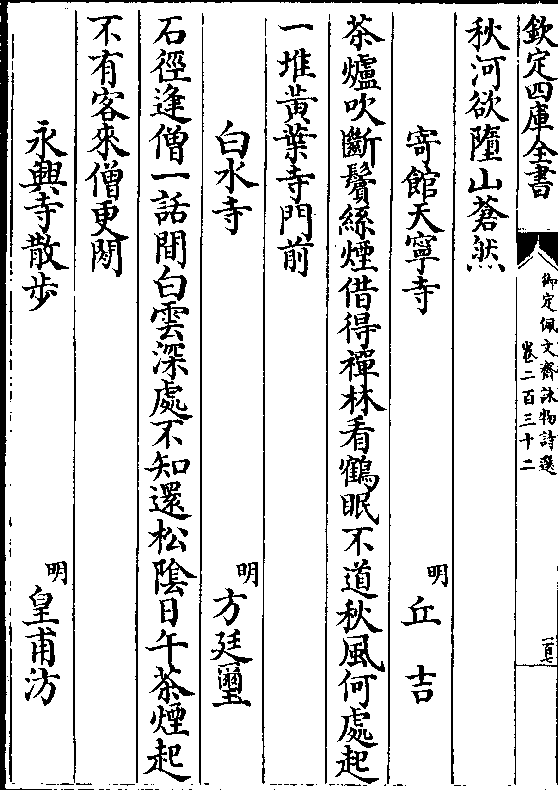 欽定四庫全書
御定佩文齋詠物詩選
卷二百三十二
秋河欲墮山蒼然
寄館天寧寺
明
丘吉
茶爐吹斷鬢絲煙借得禪林看鶴眠不道秋風何處起
一堆黃葉寺門前
白水寺
明
方廷璽
石徑逢僧一話間白雲深處不知還松陰日午茶煙起
不有客來僧更閒
永興寺散步
明
皇甫汸